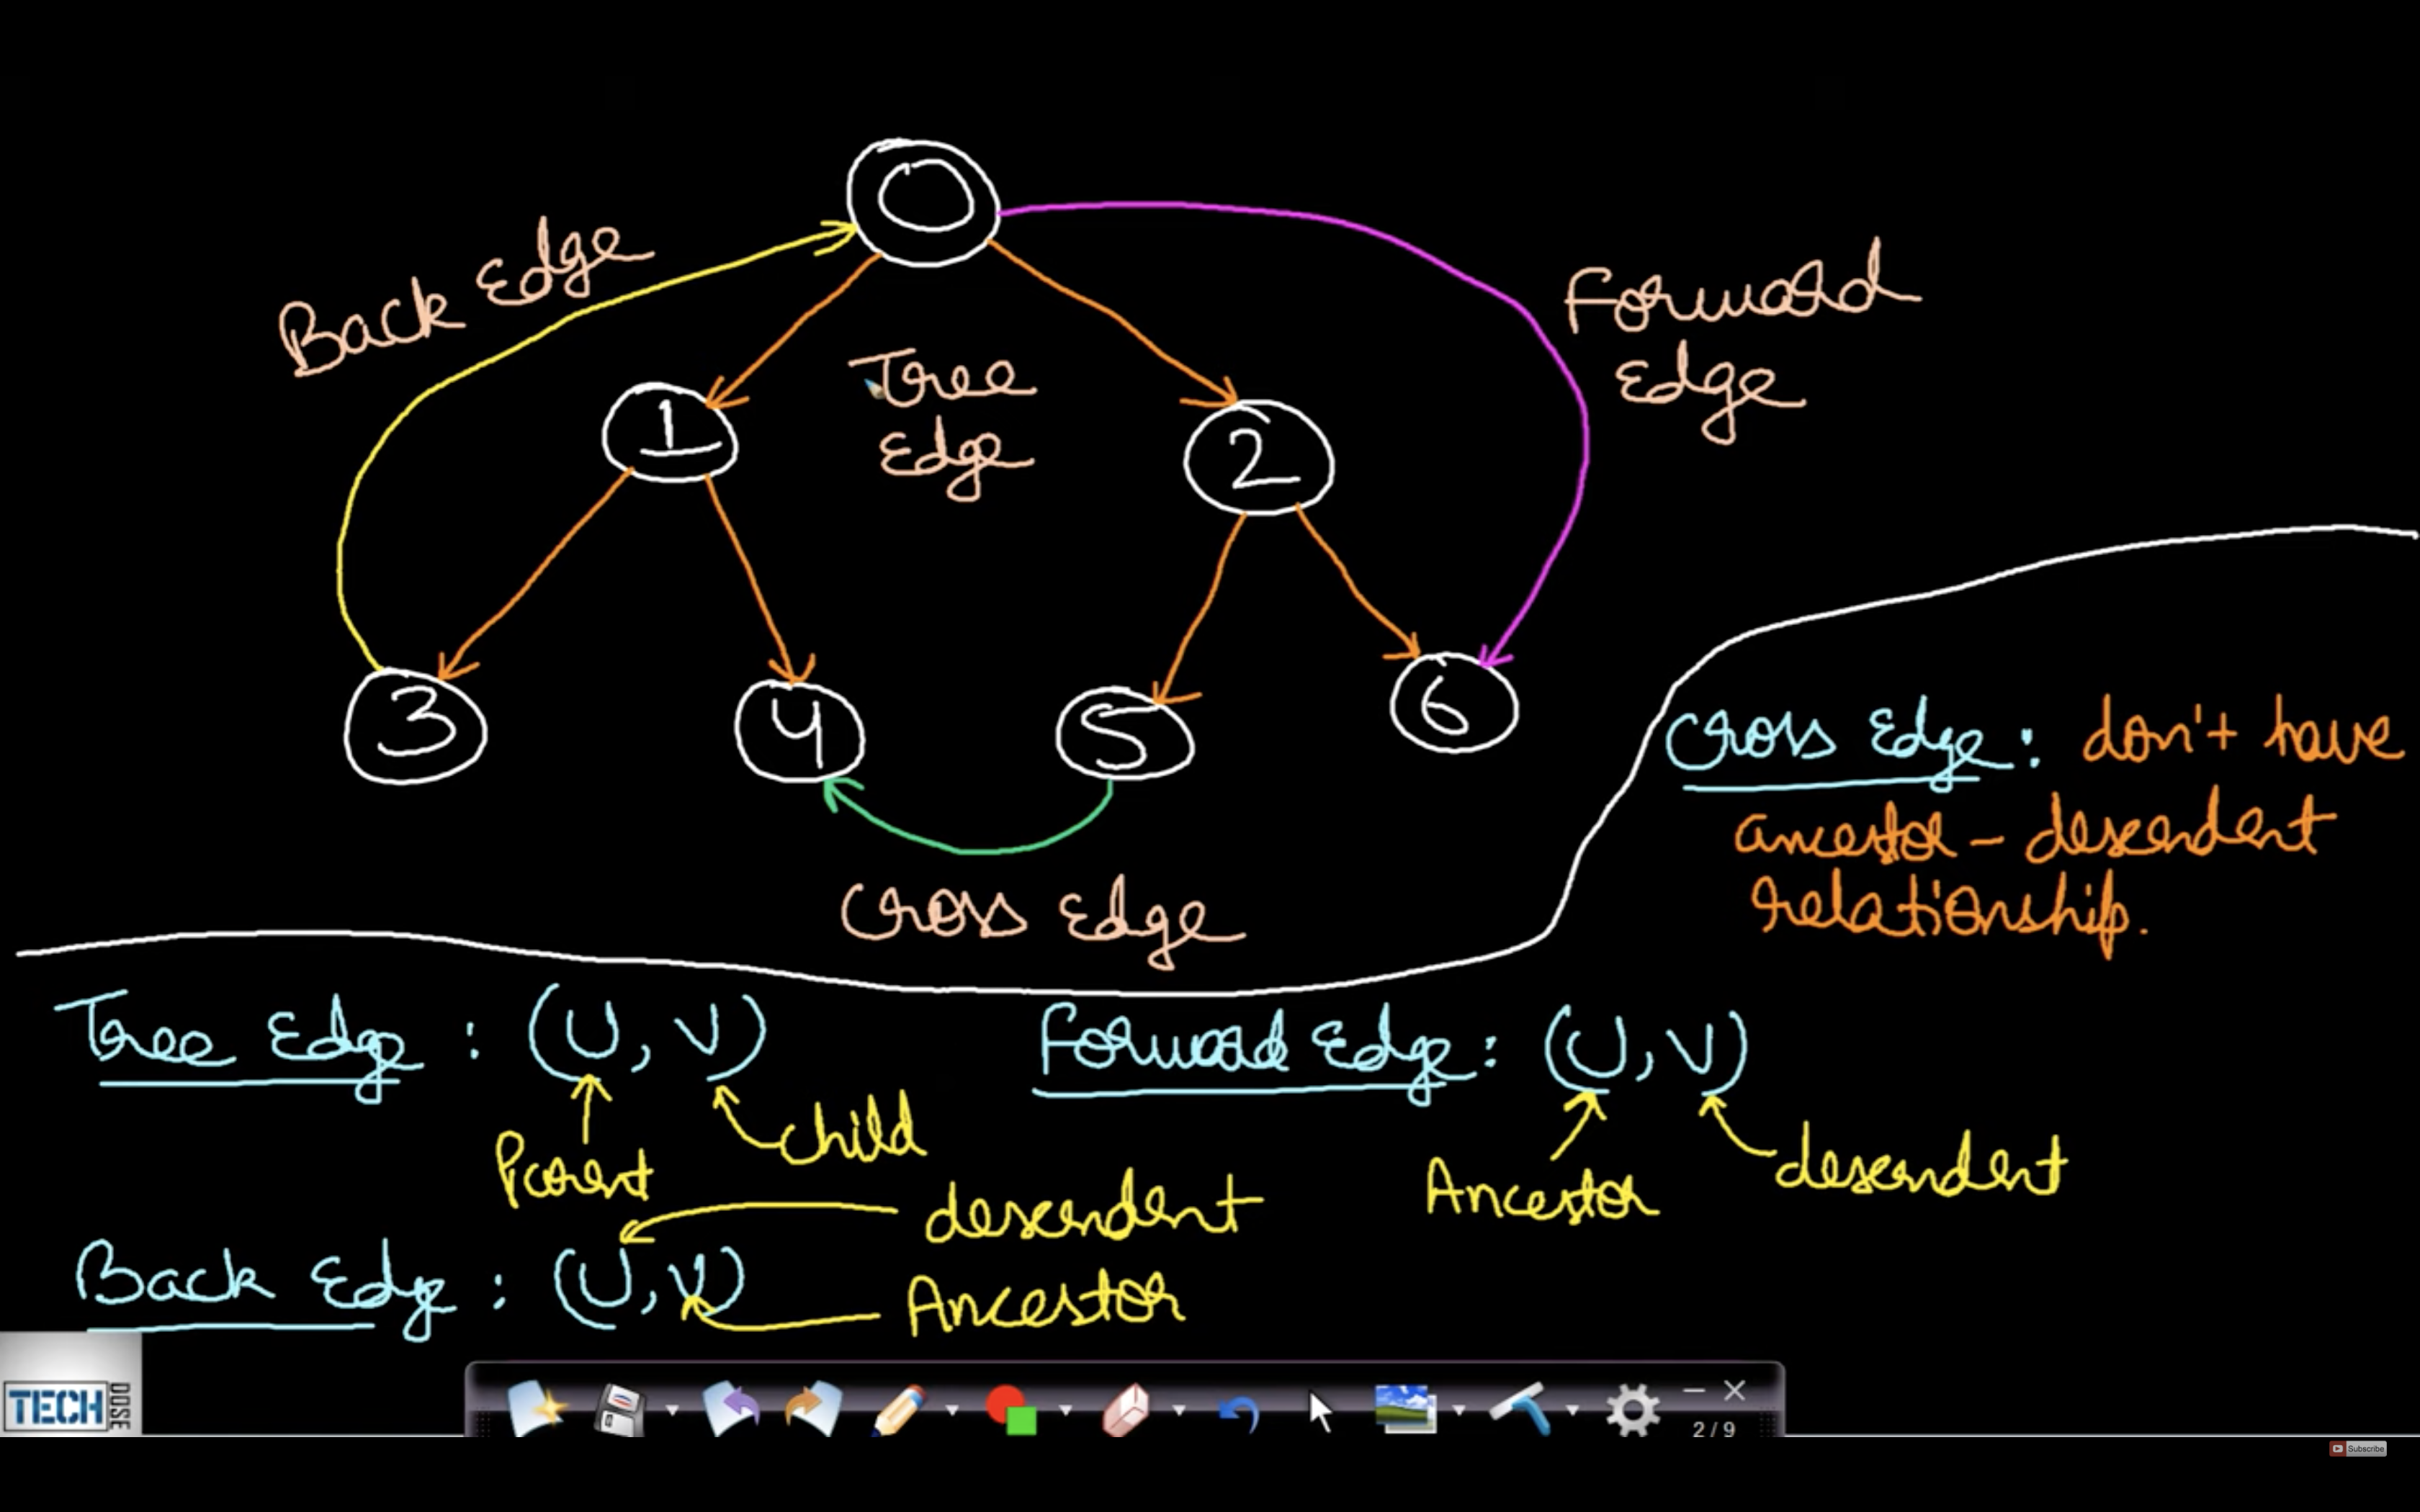 0
Back Edge
Forward
Edge
Tree
Edge
1
2
3
4
5
6
Cross Edge
Cross Edge : don't have
ancestor - descendent
relationship.
Tree Edge : (U, V)
Parent
child
Forward Edge : (U, V)
Ancestor
descendent
Back Edge : (U, V)
descendent
Ancestor
TECH
DOSE
2 / 9
Subscribe